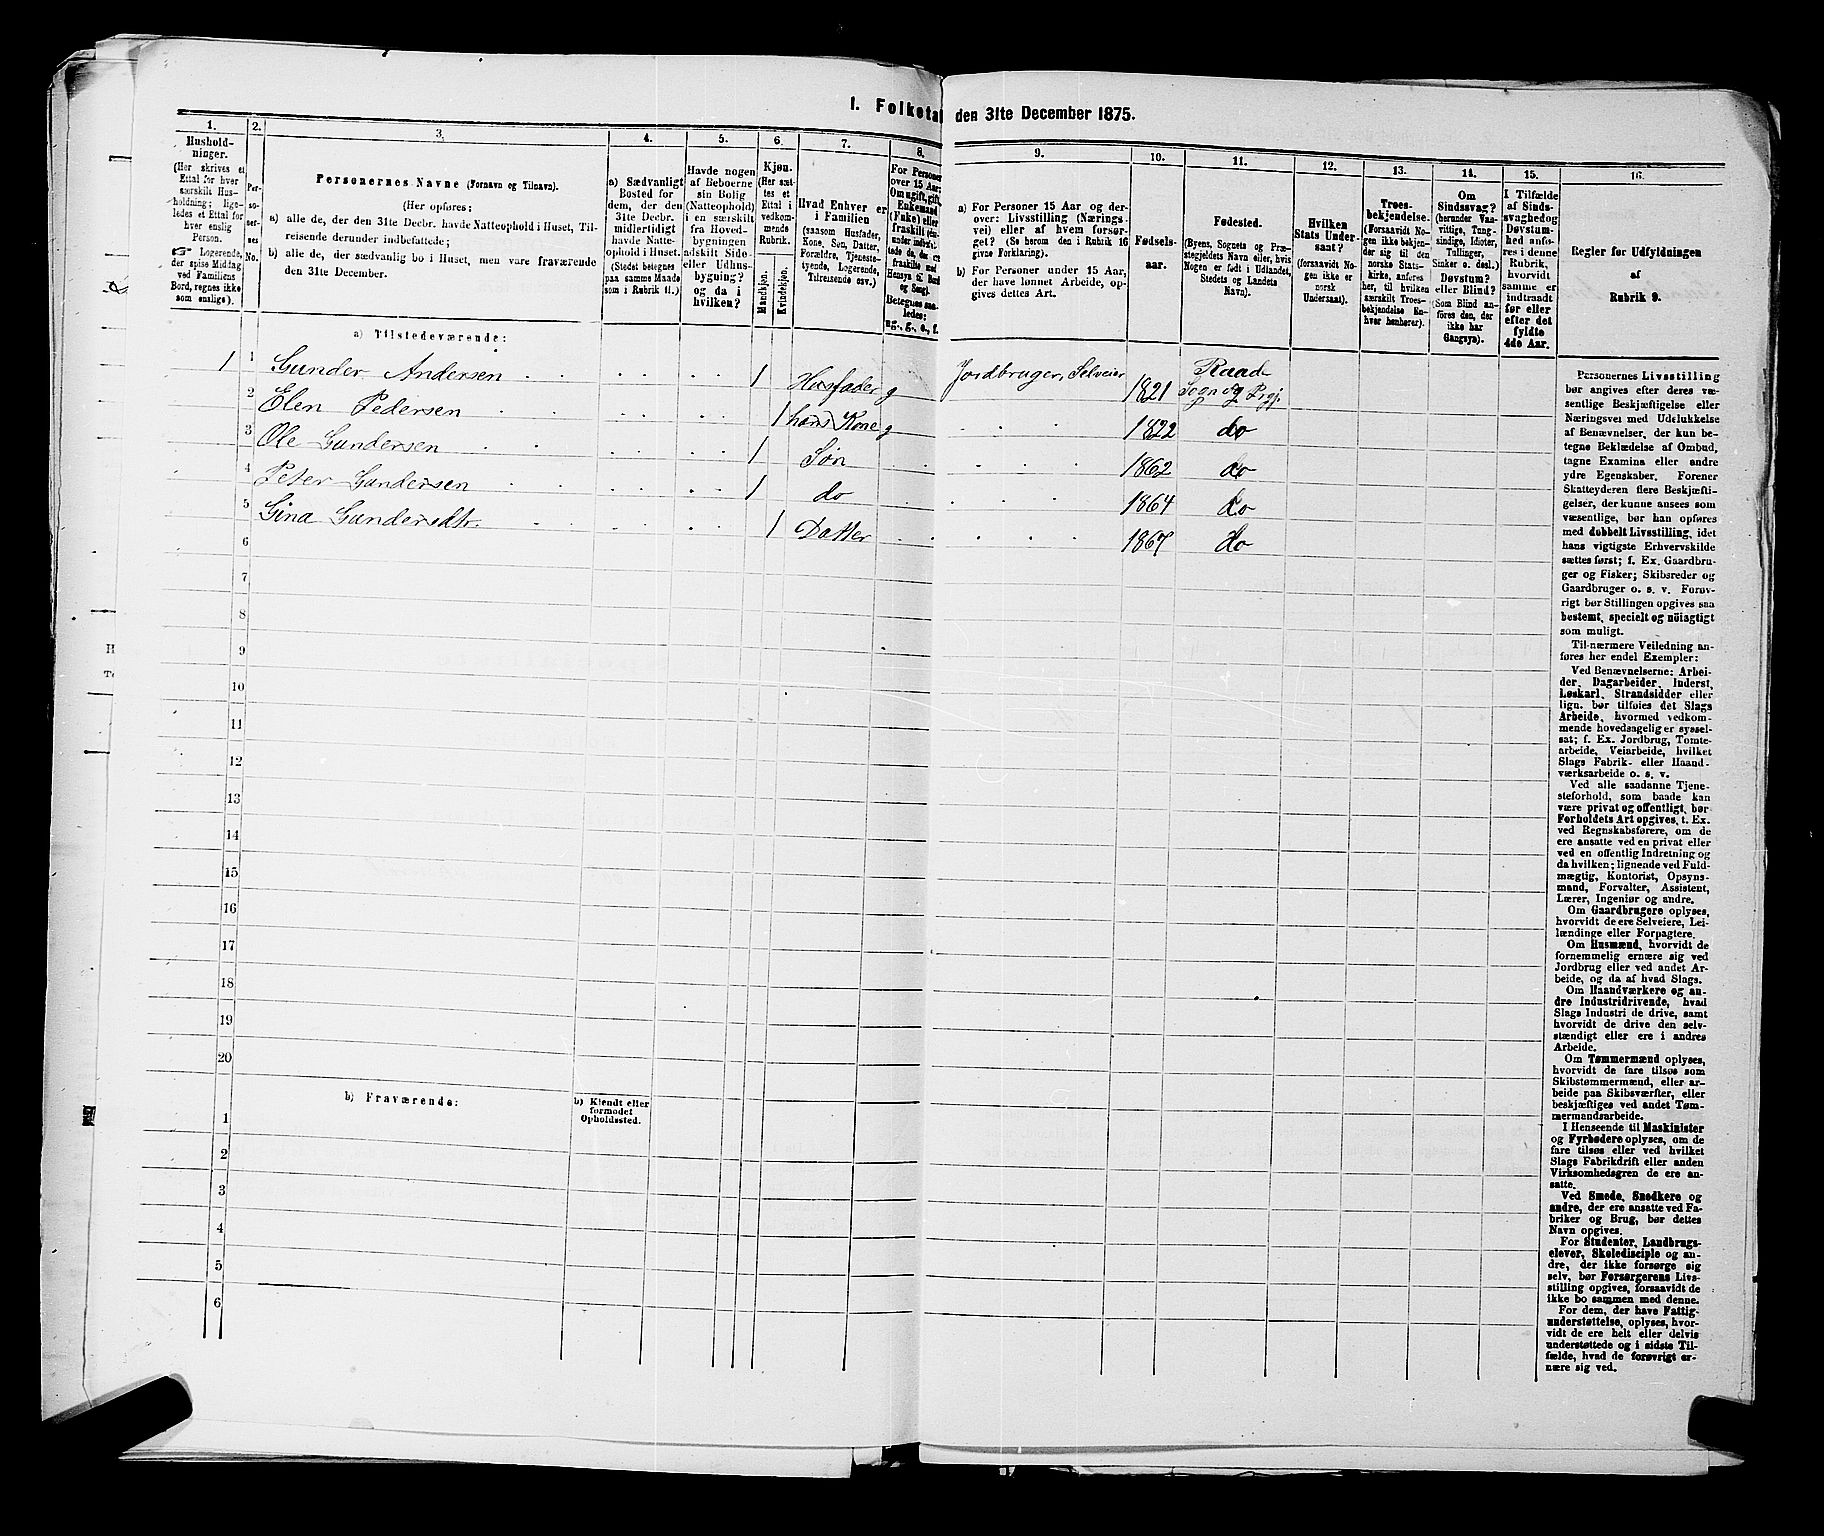 I. Folketal den 31te December 1875.
1.
2.
3.
4.
5.
6.
7.
8.
9.
10.
11.
12.
13.
14.
15.
16.
Hushold-
ninger.
(Her skrives et
Ettal for hver
særskilt Hus-
holdning; lige-
ledes et Ettal for
hver enslig
Person.
Logerende,
der spise Middag
ved Familiens
Bord, regnes ikke
som enslige).
Per-
so-
ner-
nes
No.
Personernes Navne (Fornavn og Tilnavn).
(Her opføres:
a) alle de, der den 31te Decbr. havde Natteophold i Huset, Til-
reisende derunder indbefattede;
b) alle de, der sædvanlig bo i Huset, men vare fraværende
den 31te December.
a) Sædvanligt
Bosted for
dem, der den
31te Decbr.
midlertidigt
havde Natte-
ophold i Huset.
(Stedet betegnes
paa samme Maade
som i Rubrik 11.)
Havde nogen
af Beboerne
sin Bolig
(Natteophold)
i en særskilt
fra Hoved-
bygningen
adskilt Side-
eller Udhus-
bygning?
og da i
hvilken?
Kjøn.
(Her sæt-
tes et
Ettal i
vedkom-
mende
Rubrik.
Mandkjøn.
Kvindekjøn.
Hvad Enhver er
i Familien
(saasom Husfader,
Kone, Søn, Datter,
Forældre, Tjeneste-
tyende, Logerende,
Tilreisende osv.)
For Personer
over 15 Aar:
Om ugift, gift,
Enkemand
(Enke) eller
fraskilt
Betegnes saa-
ledes:
ug., g., e., f.
a) For Personer 15 Aar og der-
over: Livsstilling (Nærings-
vei) eller af hvem forsør-
get? (Se herom den i Rubrik 16
givne Forklaring).
b) For Personer under 15 Aar,
der have lønnet Arbeide, op-
gives dettes Art.
Fødsels-
aar.
Fødested.
(Byens, Sognets og Præ-
stegjeldets Navn eller, hvis
Nogen er født i Udlandet,
Stedets og Landets
Navn).
Hvilken
Stats Under-
saat?
(forsaavidt No-
gen ikke er
norsk
Undersaat).
Troes-
bekjendelse.
(Forsaavidt No-
gen ikke bekjen-
der sig til den
norske Stats-
kirke, anføres
her, til hvilken
særskilt Troes-
bekjendelse En-
hver henhører).
Om
Sindssvag?
(herunder Van-
vittige, Tung-
sindige, Idioter,
Tullinger,
Sinker o. desl.)
Døvstum?
eller Blind?
(Som Blind an-
føres den, der
ikke har
Gangsyn).
I Tilfælde
af Sinds-
svaghed og
Døvstum-
hed anfø-
res i denne
Rubrik,
hvorvidt
samme er
indtraadt
før eller
efter det
fyldte
4de Aar.
Regler for Udfyldningen
af
Rubrik 9.
a) Tilstedeværende:
1 1 Gunder Andersen 1 Husfader g Jordbruger, Selveier 1821 Raade Sogn og Prgj.
2 Elen Pedersen 1 hans Kone g 1822 do
3 Ole Gundersen 1 Søn 1862 do
4 Peter Gundersen 1 do 1864 do
5 Gina Gundersdtr. 1 Datter 1867 do
6
7
8
9
10
11
12
13
14
15
16
17
18
19
20
b) Fraværende:
b) Kjendt eller
formodet
Opholdssted.
1
2
3
4
5
6
Personernes Livsstilling
bør angives efter deres væ-
sentlige Beskjæftigelse eller
Næringsvei med Udelukkelse
af Benævnelser, der kun be-
tegne Beklædelse af Ombud,
tagne Examina eller andre
ydre Egenskaber. Forener
Skatteyderen flere Beskjæfti-
gelser, der kunne ansees som
væsentlige, bør han opføres
med dobbelt Livsstilling, idet
hans vigtigste Erhvervskilde
sættes først; f. Ex. Gaardbru-
ger og Fisker; Skibsreder og
Gaardbruger o. s. v. Forøv-
rigt bør Stillingen opgives saa
bestemt, specielt og nøiagtigt
som muligt.
Til nærmere Veiledning an-
føres her endel Exempler:
Ved Benævnelserne: Arbei-
der, Dagarbeider, Inderst,
Løskarl, Strandsidder eller
lign. bør tilføies det Slags
Arbeide, hvormed vedkom-
mende hovedsagelig er syssel-
sat; f. Ex. Jordbrug, Tomte-
arbeide, Veiarbeide, hvilket
Slags Fabrik- eller Haand-
værksarbeide o. s. v.
Ved alle saadanne Tjene-
steforhold, som baade kan
være privat og offentligt, bør
Forholdets Art opgives, t. Ex.
ved Regnskabsførere, om de
ere ansatte ved en privat eller
ved en offentlig Indretning og
da hvilken; lignende ved Fuld-
mægtig, Kontorist, Opsyns-
mand, Forvalter, Assistent,
Lærer, Ingeniør og andre.
Om Gaardbrugere oplyses,
hvorvidt de ere Selveiere, Lei-
lændinge eller Forpagtere.
Om Husmænd, hvorvidt de
fornemmelig ernære sig ved
Jordbrug eller ved andet Ar-
beide, og da af hvad Slags.
Om Haandværkere og an-
dre Industridrivende, hvad
Slags Industri de drive, samt
hvorvidt de drive den selv-
stændigt eller ere i andres
Arbeide.
Om Tømmermænd oplyses,
hvorvidt de fare tilsøs som
Skibstømmermænd, eller ar-
beide paa Skibsværfter, eller
beskjæftiges ved andet Tøm-
mermandsarbeide.
I Henseende til Maskinister
og Fyrbødere oplyses, om de
fare tilsøs eller ved hvilket
Slags Fabrikdrift eller anden
Virksomhedsgren de ere an-
satte.
Ved Smede, Snedkere og
andre, der ere ansatte ved Fa-
briker og Brug, bør dettes
Navn opgives.
For Studenter, Landbrugs-
elever, Skoledisciple og an-
dre, der ikke forsørge sig
selv, bør Forsørgerens Livs-
stilling opgives, forsaavidt de
ikke bo sammen med denne.
For dem, der have Fattig-
understøttelse, oplyses, hvor-
vidt de ere helt eller delvis
understøttede og i sidste Til-
fælde, hvad de forøvrigt er-
nære sig ved.